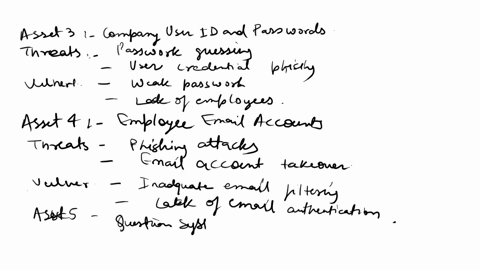 Asset 3 :- Company User ID and Passwords
Threats :- Password guessing
- User credential phishing
Vulner :- Weak password
- Lack of employees.
Asset 4 :- Employee Email Accounts
Threats - Phishing attacks
- Email account takeover
Vulner - Inadquate email filtering
- Lack of email authentication .
Asset 5 - Question Syst